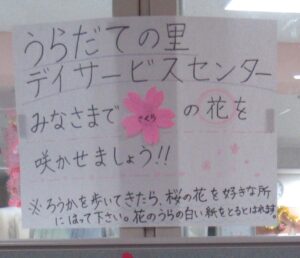 うらだての里
デイサービスセンター
みなさまで さくら の花を
咲かせましょう!!
※ ろうかを歩いてきたら、桜の花を好きな所
にはって下さい。花のうらの白い紙をとるとはれます。